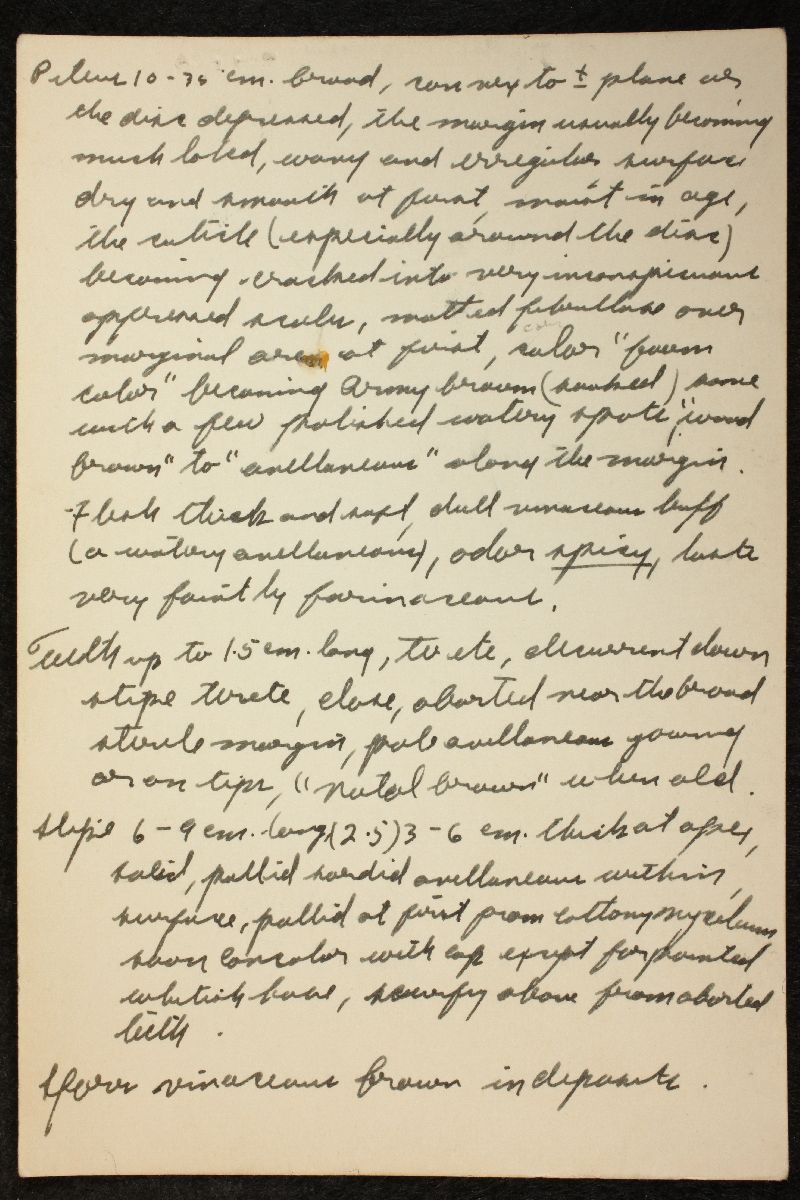 Pileus 10-30 cm. broad, convex to ± plane or
the disc depressed, the margin usually becoming
much lobed, wavy and irregular, surface
dry and smooth at first, moist in age,
the cuticle (especially around the disc)
becoming cracked into very inconspicuous
appressed scales, matted fibrillose over
marginal area at first, color "fawn
color" becoming Army brown (soaked) some
with a few polished watery spots, "wood
brown" to "avellaneous" along the margin.
Flesh thick and soft, dull vinaceous buff
(a watery avellaneous), odor spicy, taste
very faintly farinaceous.
Teeth up to 1.5 cm. long, terete, decurrent down
stipe terete, close, aborted near the broad
sterile margin, pale avellaneous young
or on tips, "natal brown" when old.
Stipe 6-9 cm. long (2.5) 3-6 cm. thick at apex,
solid, pallid sordid avellaneous within,
surface, pallid at first from cottony mycelium,
soon concolor with cap except for pointed
whitish base, scurfy above from aborted
teeth.
Spores vinaceous brown in deposits.